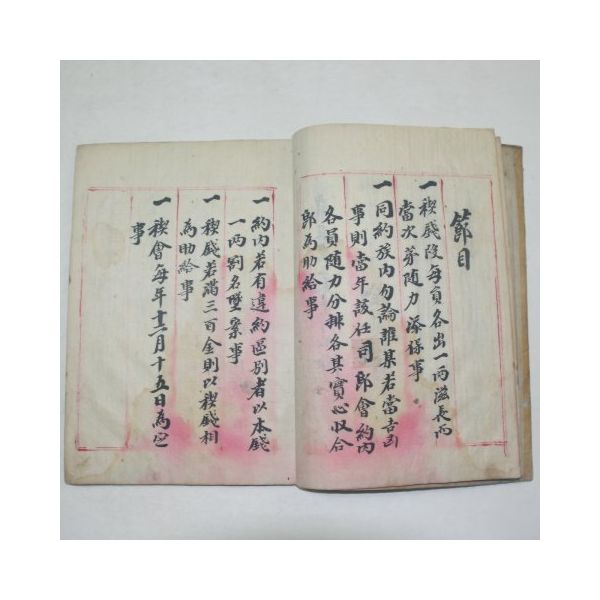 節目
一 稧錢段每員各出一兩滋長而
當次等隨力添補事
一 同約族內勿論誰某若當吉凶
事則當年該任司即會約內
各員隨力分排各其實心收合
即爲助給事
一 約內若有違約區別者以本錢
一兩割名墜案事
一 稧錢若滿三百金則以稧錢相
爲助給事
一 稧會每年十二月十五日爲定
事